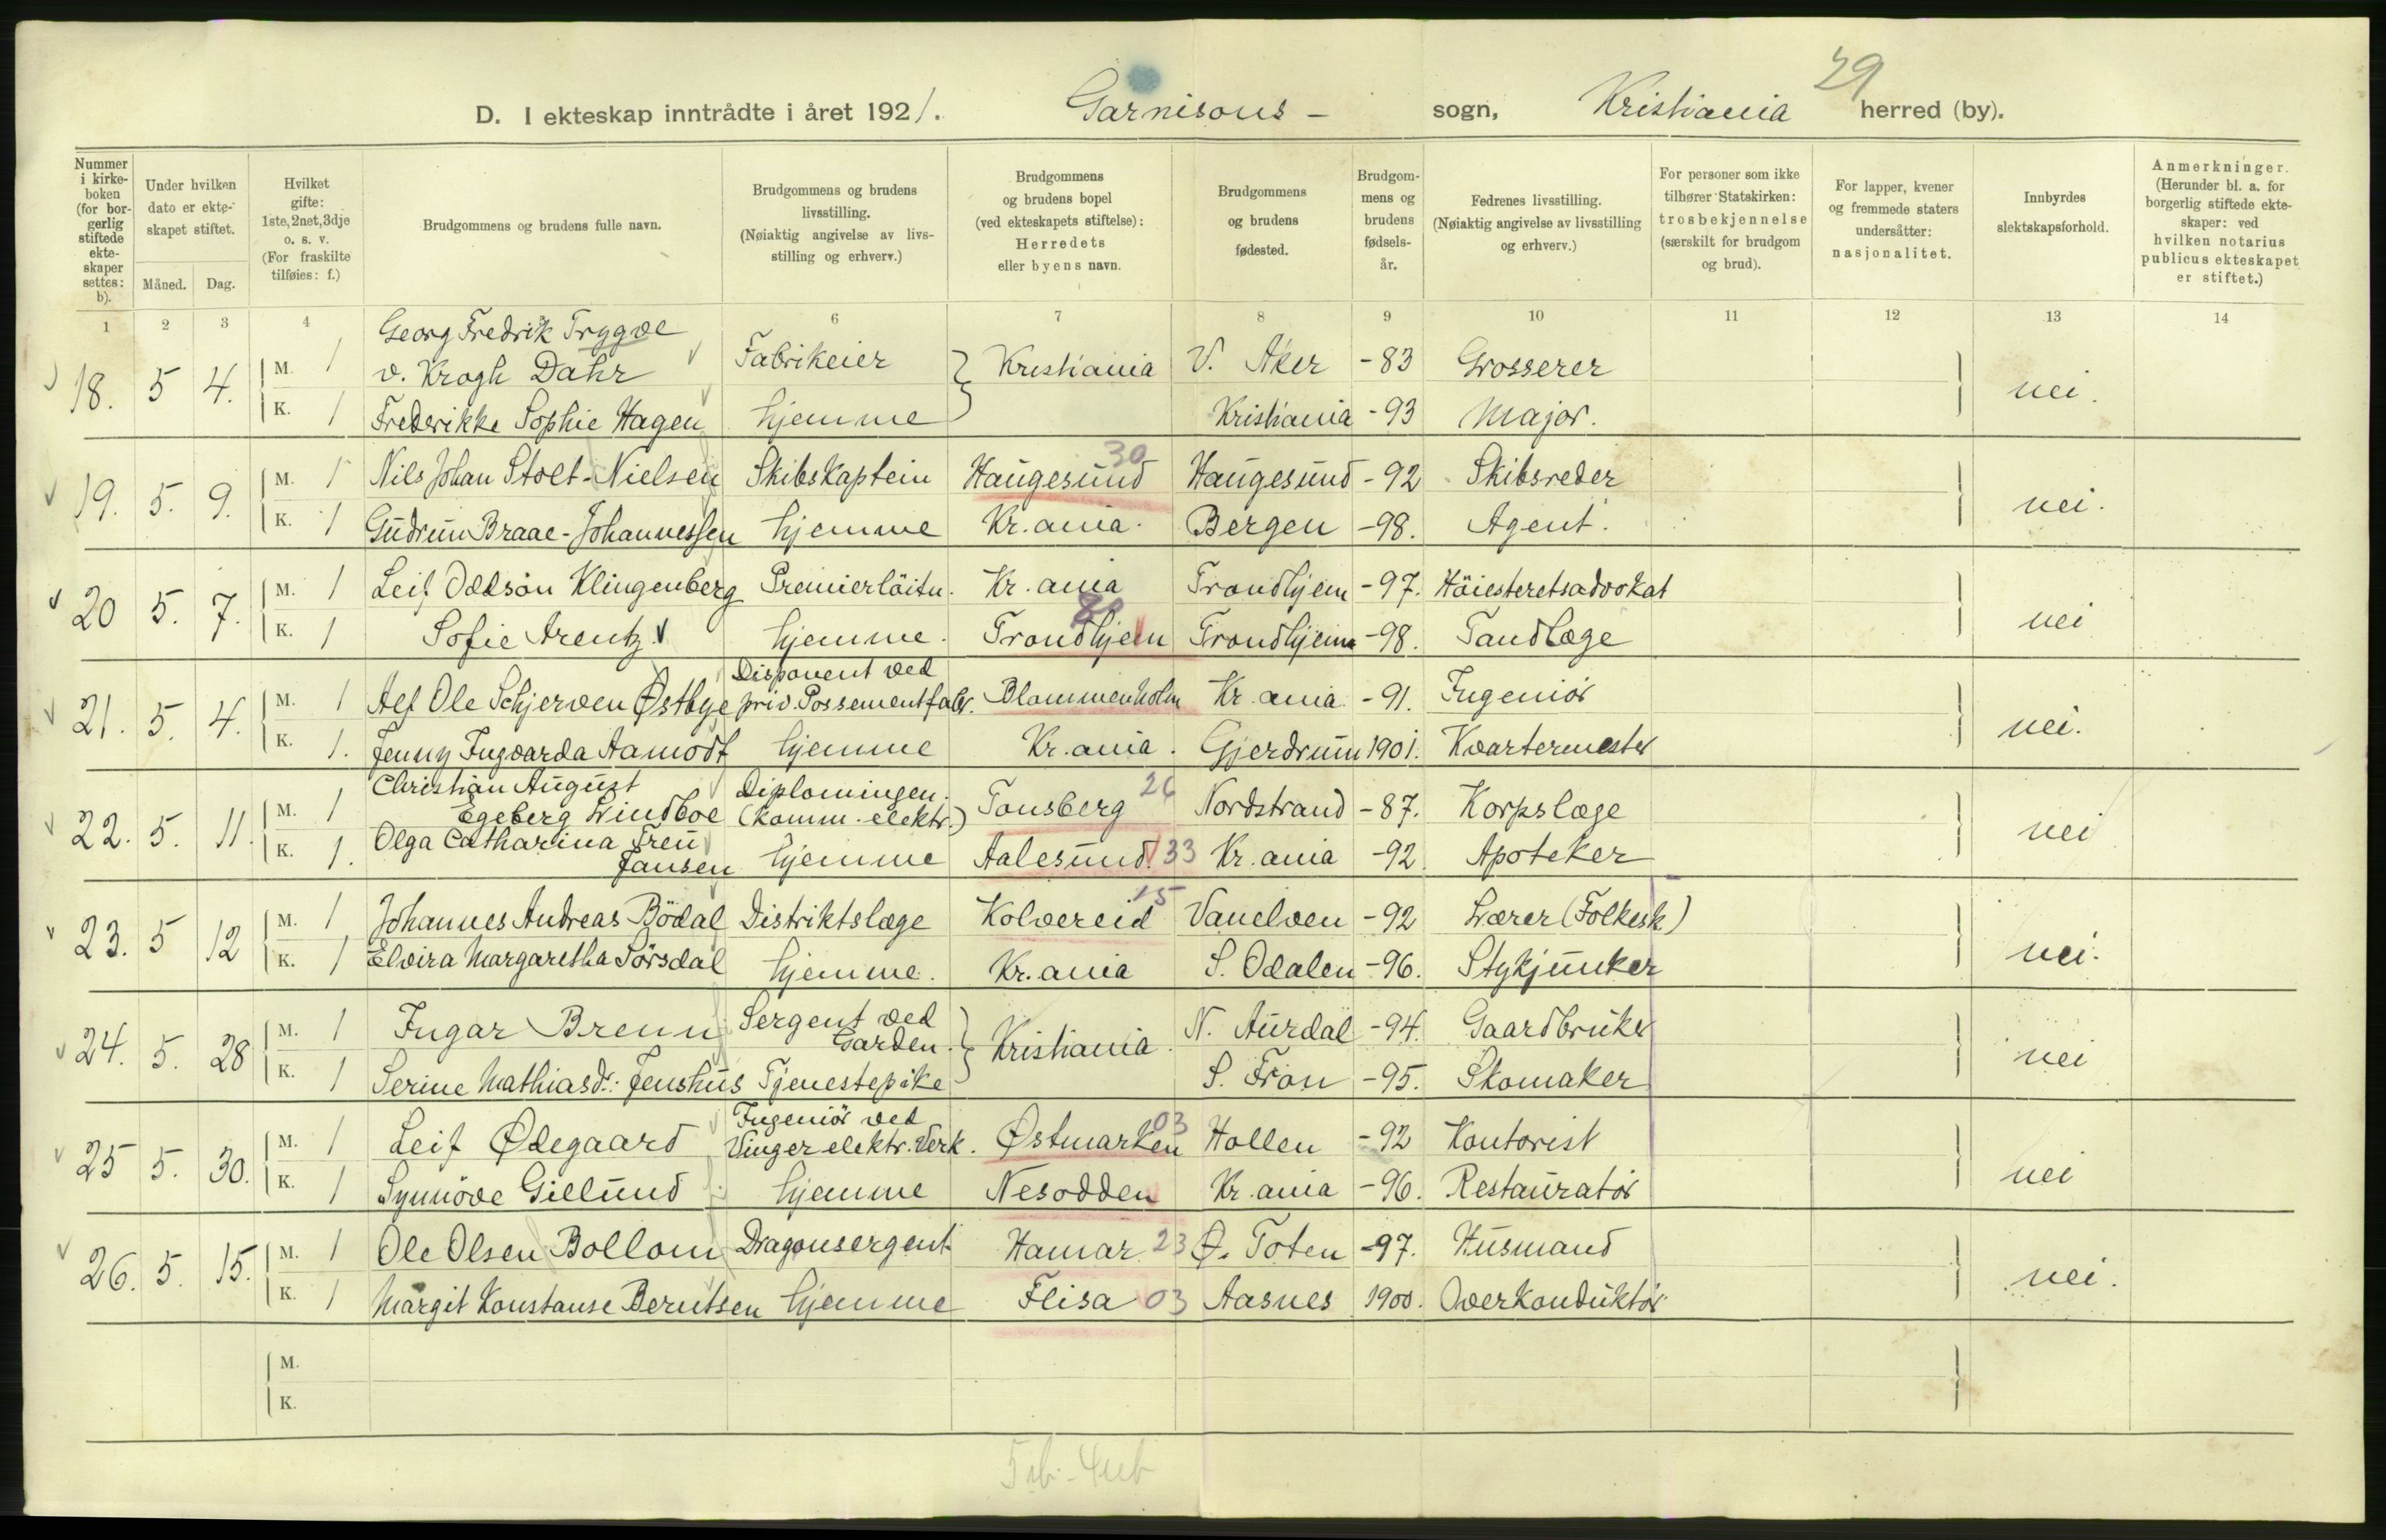 29
D. I ekteskap inntrådte i året 1921. Garnisons - sogn, Kristiania herred (by).
Nummer i kirkeboken (for borgerlig stiftede ekteskaper settes: b).
Under hvilken dato er ekteskapet stiftet.
Måned. Dag.
Hvilket gifte: 1ste, 2net, 3dje o. s. v. (For fraskilte tilføies: f.)
Brudgommens og brudens fulle navn.
Brudgommens og brudens livsstilling. (Nøiaktig angivelse av livsstilling og erhverv.)
Brudgommens og brudens bopel (ved ekteskapets stiftelse): Herredets eller byens navn.
Brudgommens og brudens fødested.
Brudgommens og brudens fødselsår.
Fedrenes livsstilling. (Nøiaktig angivelse av livsstilling og erhverv.)
For personer som ikke tilhører Statskirken: trosbekjennelse (særskilt for brudgom og brud).
For lapper, kvener og fremmede staters undersåtter: nasjonalitet.
Innbyrdes slektskapsforhold.
Anmerkninger. (Herunder bl. a. for borgerlig stiftede ekteskaper: ved hvilken notarius publicus ekteskapet er stiftet.)
1 2 3 4 6 7 8 9 10 11 12 13 14
18. 5 4. M. 1 Georg Fredrik Trygve v. Krogh Dahr Fabrikeier Kristiania V. Aker -83 Grosserer nei.
K. 1 Frederikke Sophie Hagen hjemme Kristiania -93 Major.
19. 5. 9. M. 1 Nils Johan Stolt-Nielsen Skibskaptein Haugesund 30 Haugesund -92 Skibsreder nei.
K. 1 Gudrun Braae-Johannessen hjemme Kr.ania. Bergen -98. Agent.
20 5. 7. M. 1 Leif Oddsön Klingenberg Premierlöitn. Kr.ania Trondhjem -97. Höiesteretsadvokat nei
K. 1 Sofie Arentz hjemme. Trondhjem Trondhjem -98. Tandlæge
21. 5. 4. M. 1 Alf Ole Schjerven Østbye Disponent ved priv. Possementfabr. Blommenholm Kr.ania -91. Ingeniör nei.
K. 1. Jenny Ingvarda Aamodt hjemme Kr.ania. Gjerdrum 1901. Kvartermester
22. 5. 11. M. 1 Christian August Egeberg Windboe Diplomingen. (Komm. elektr.) Tønsberg 26 Nordstrand -87. Korpslæge nei
K. 1. Olga Catharina Treu Jansen hjemme Aalesund. 33 Kr.ania -92 Apoteker
23. 5 12 M. 1 Johannes Andreas Bödal Distriktslæge Kolvereid 15 Vanelven -92 Lærer (Folkesk) nei.
K. 1 Elvira Margaretha Sörsdal hjemme. Kr.ania S. Odalen -96. Stykjunker
24. 5. 28 M. 1 Ingar Brenn Sergent ved Garden. Kristiania. N. Aurdal -94. Gaardbruker nei
K. 1 Serine Mathiasd. Jenshus Tjenestepike S. Fron -95. Skomaker
25 5. 30. M. 1 Leif Ødegaard Ingeniör ved Vinger elektr. Verk. Østmarken 03 Hollen -92 Kontorist nei
K. 1 Synnöve Gillund hjemme Nesodden Kr.ania -96. Restauratör
26. 5. 15. M. 1 Ole Olsen Bollom Dragonsergent Hamar 23 Ø. Toten -97. Husmand nei.
K. 1 Margit Konstanse Berntsen hjemme Flisa 03 Aasnes 1900. Overkonduktör
M.
K.